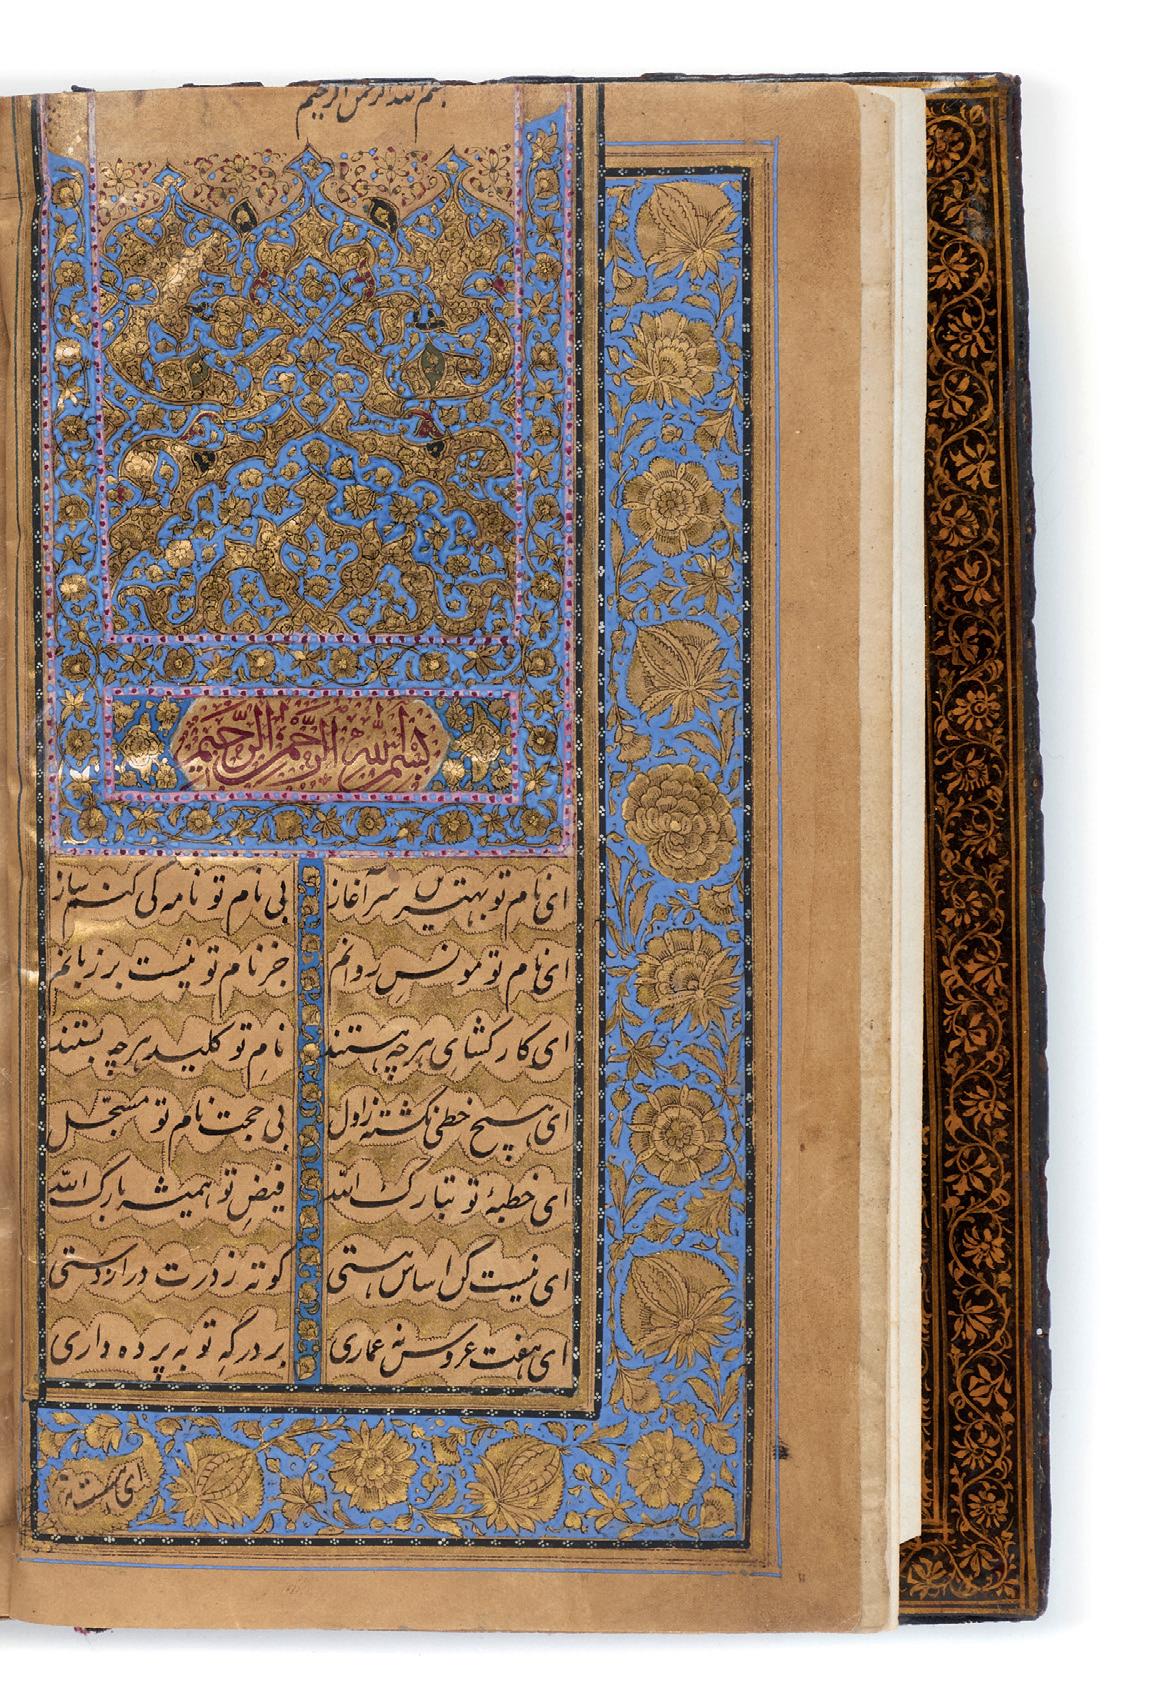 بسم الله الرحمن الرحیم
بِسْمِ اللّٰهِ الرَّحْمٰنِ الرَّحِیْمِ
ای نام تو بهترین سرآغاز بی نام تو نامه کی کنم باز
ای نام تو مونس روانم جز نام تو نیست بر زبانم
ای کارکشای هرچه هستند نام تو کلید هرچه بستند
ای هیچ خطی نکشته ز اول بی حجت نام تو مسجّل
ای خطبهٔ تو تبارک اللّه فیض تو همیشه بارک اللّه
ای نیست کن اساس هستی کوته ز درت درازدستی
ای هفت عروس نه عماری بر درگه تو به پرده داری
ای هست نه